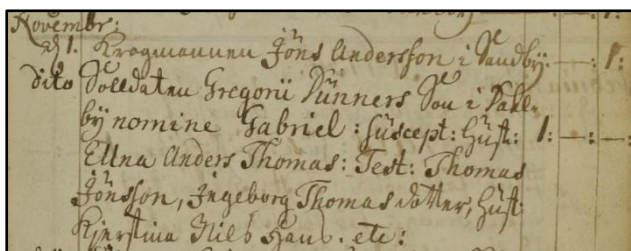 Novembr:
d 1. Krogmannen Jöns Andersson i Sandby. — 1:
dito Solldaten Gregorii Dünners Son i Dall-
bÿ nomine Gabriel: Suscept: Hust: 1: — : —
Ellna Anders Thomas: Test: Thomas
Jönsson, Ingeborg Thomas dotter, Hust
Kjerstina Nils Hans. etc: